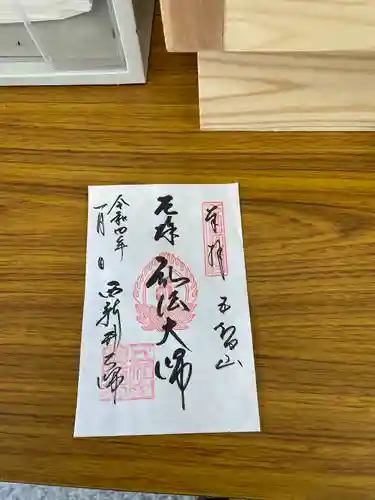 奉拝
五智山
厄除
弘法大師
令和四年
一月 日
西新井大師